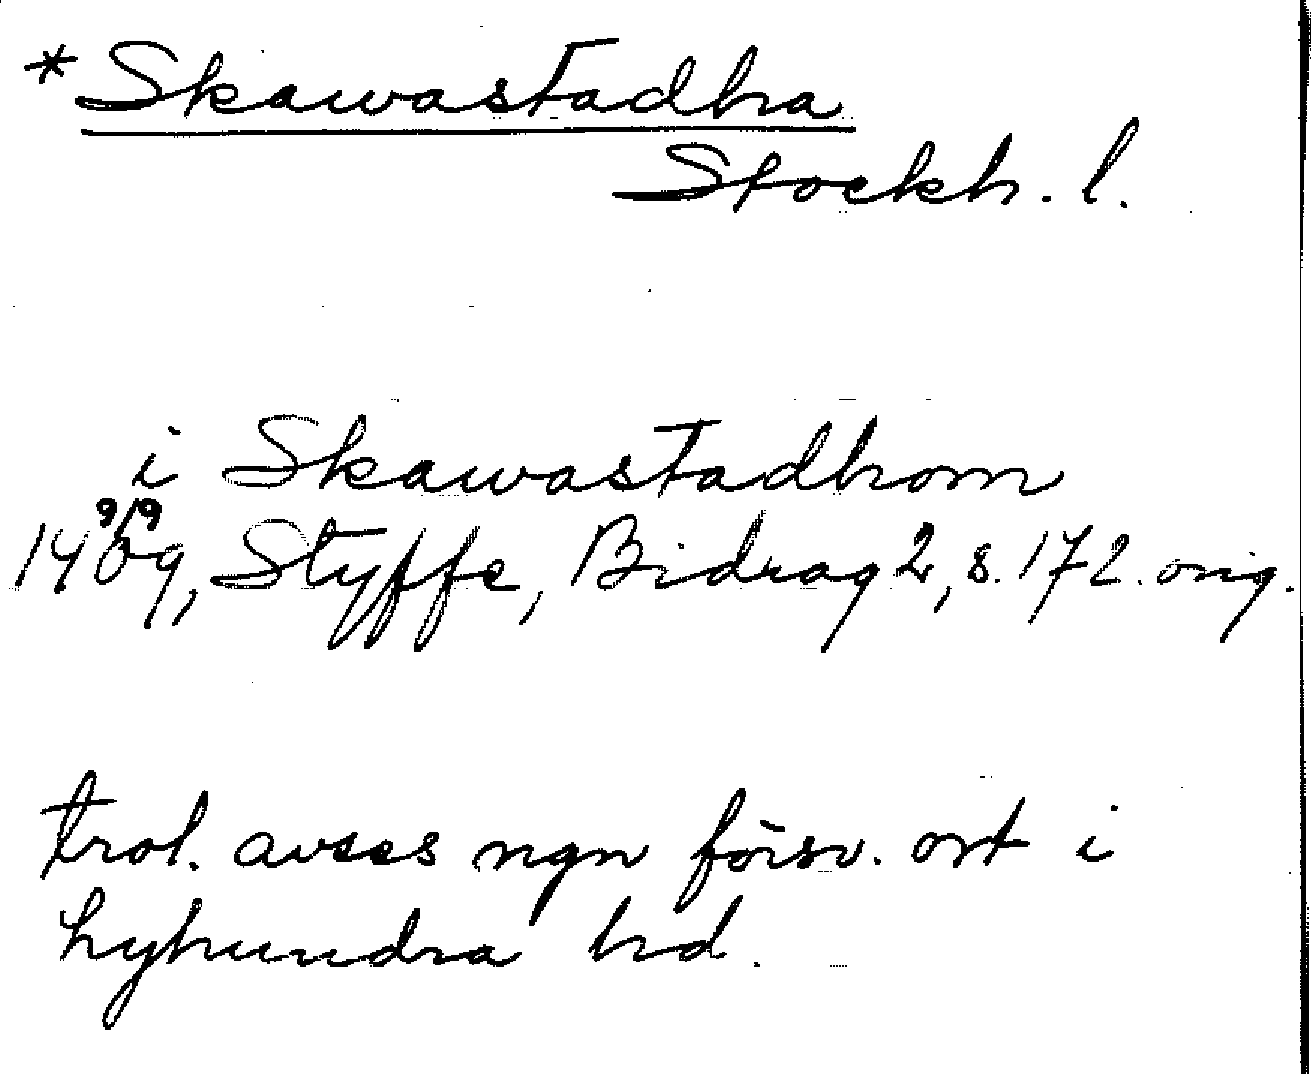 *Skawastadha
Stockh. l.
i Skawastadhom
9/9
1409, Styffe, Bidrag 2, s. 172. orig.
trol. avses ngn försv. ort i
Lyhundra hd.